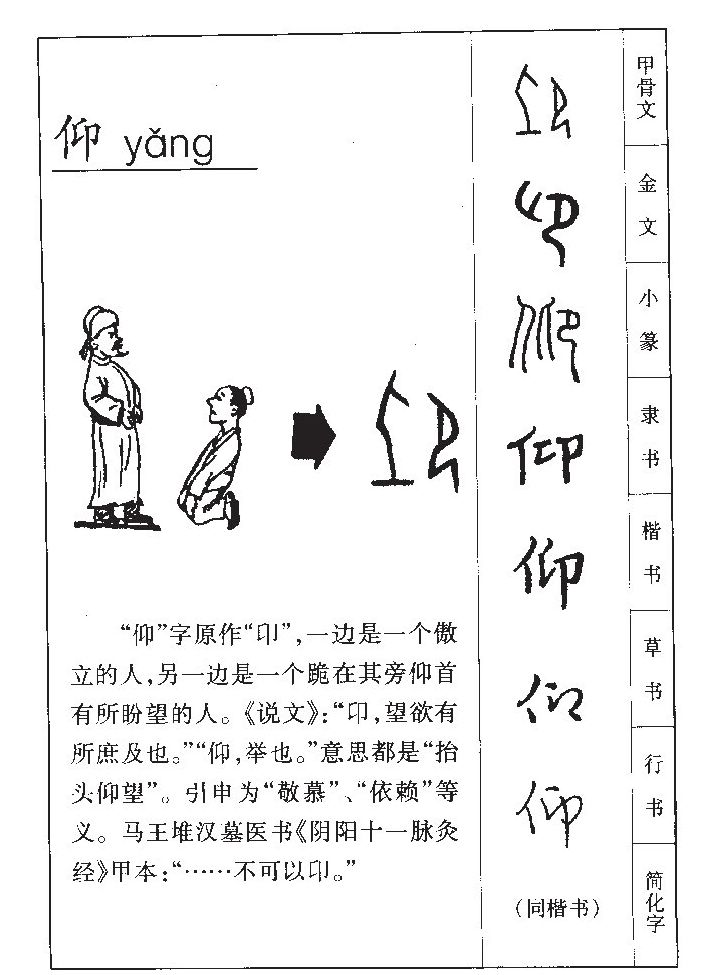 仰 yǎng
“仰”字原作“卬”，一边是一个傲
立的人，另一边是一个跪在其旁仰首
有所盼望的人。《说文》：“卬，望欲有
所庶及也。”“仰，举也。”意思都是“抬
头仰望”。引申为“敬慕”、“依赖”等
义。马王堆汉墓医书《阴阳十一脉灸
经》甲本：“……不可以卬。”
甲骨文
金文
小篆
隶书
仰
楷书
仰
草书
仰
行书
仰
简化字
（同楷书）